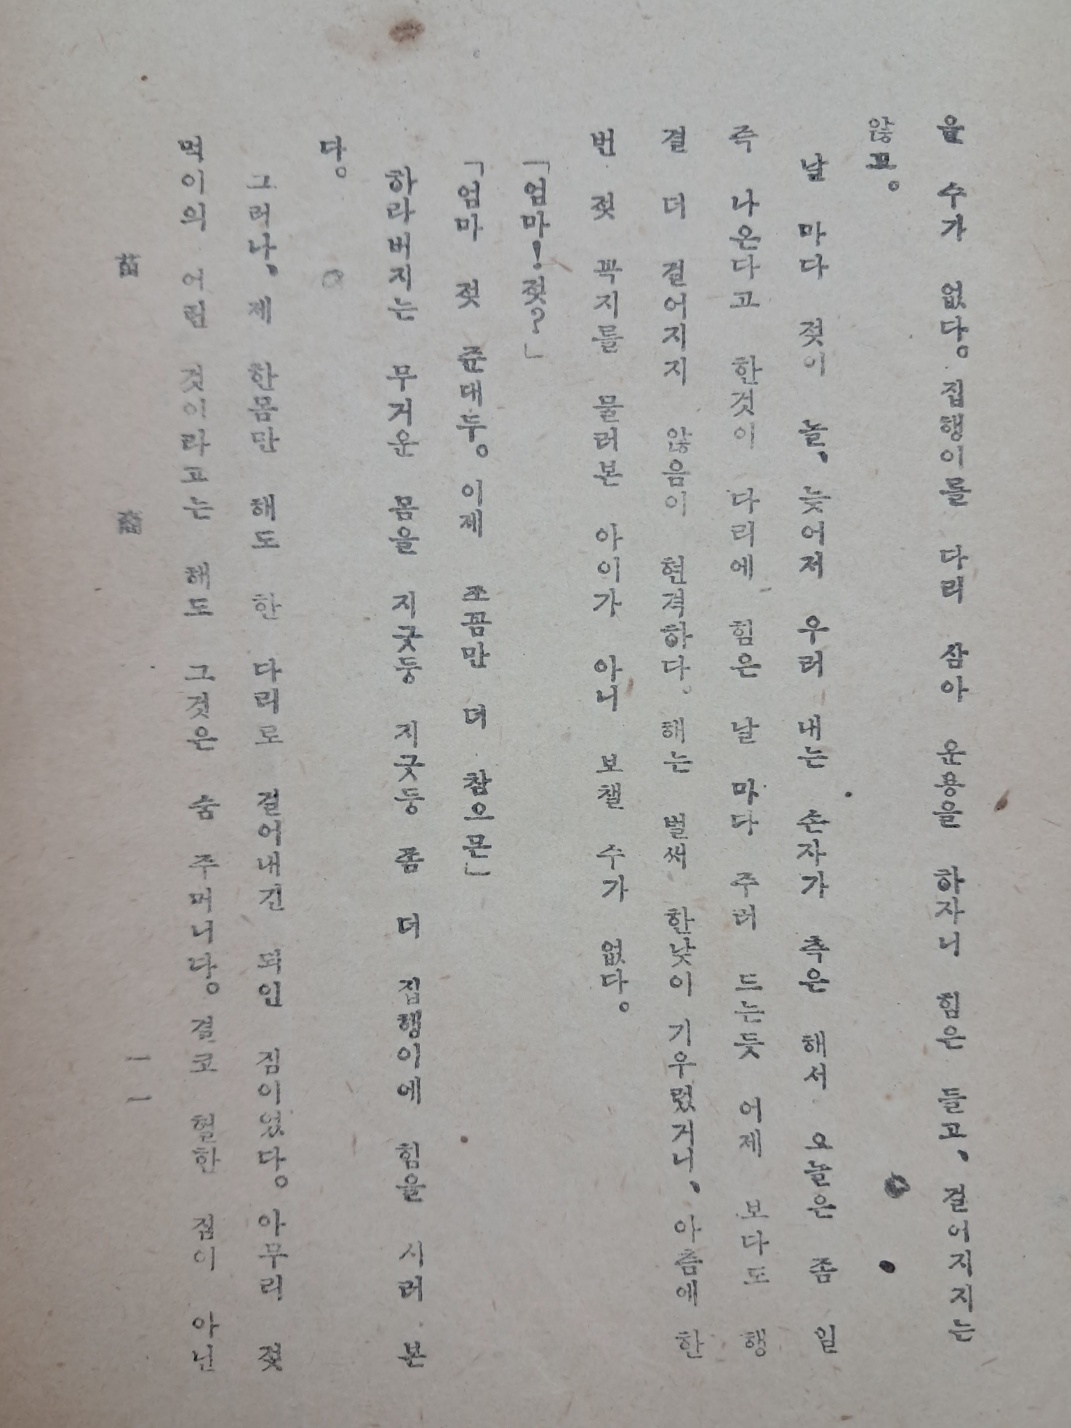 을 수가 없다。집행이를 다리 삼아 운용을 하자니 힘은 들고、걸어지지는
않고。
날 마다 젖이 늘、늦어저 우러 내는 손자가 측은 해서 오늘은 좀 일
즉 나온다고 한것이 다리에 힘은 날 마다 주러 드는듯 어제 보다도 행
결 더 걸어지지 않음이 현격하다。해는 벌써 한낮이 기우렀거니、아츰에 한
번 젖 꼭지를 물러본 아이가 아니 보챌 수가 없다。
「엄마!젖?」
「엄마 젖 준대두。이제 쪼꼼만 더 참으문」
하라버지는 무거운 몸을 지긋둥 지긋둥 좀 더 집행이에 힘을 시러 본
다。
그러나、제 한몸만 해도 한 다리로 걸어내긴 되인 짐이었다。아무리 젖
먹이의 어린 것이라고는 해도 그것은 숨 주머니다。결코 헐한 짐이 아닌
苗 一一